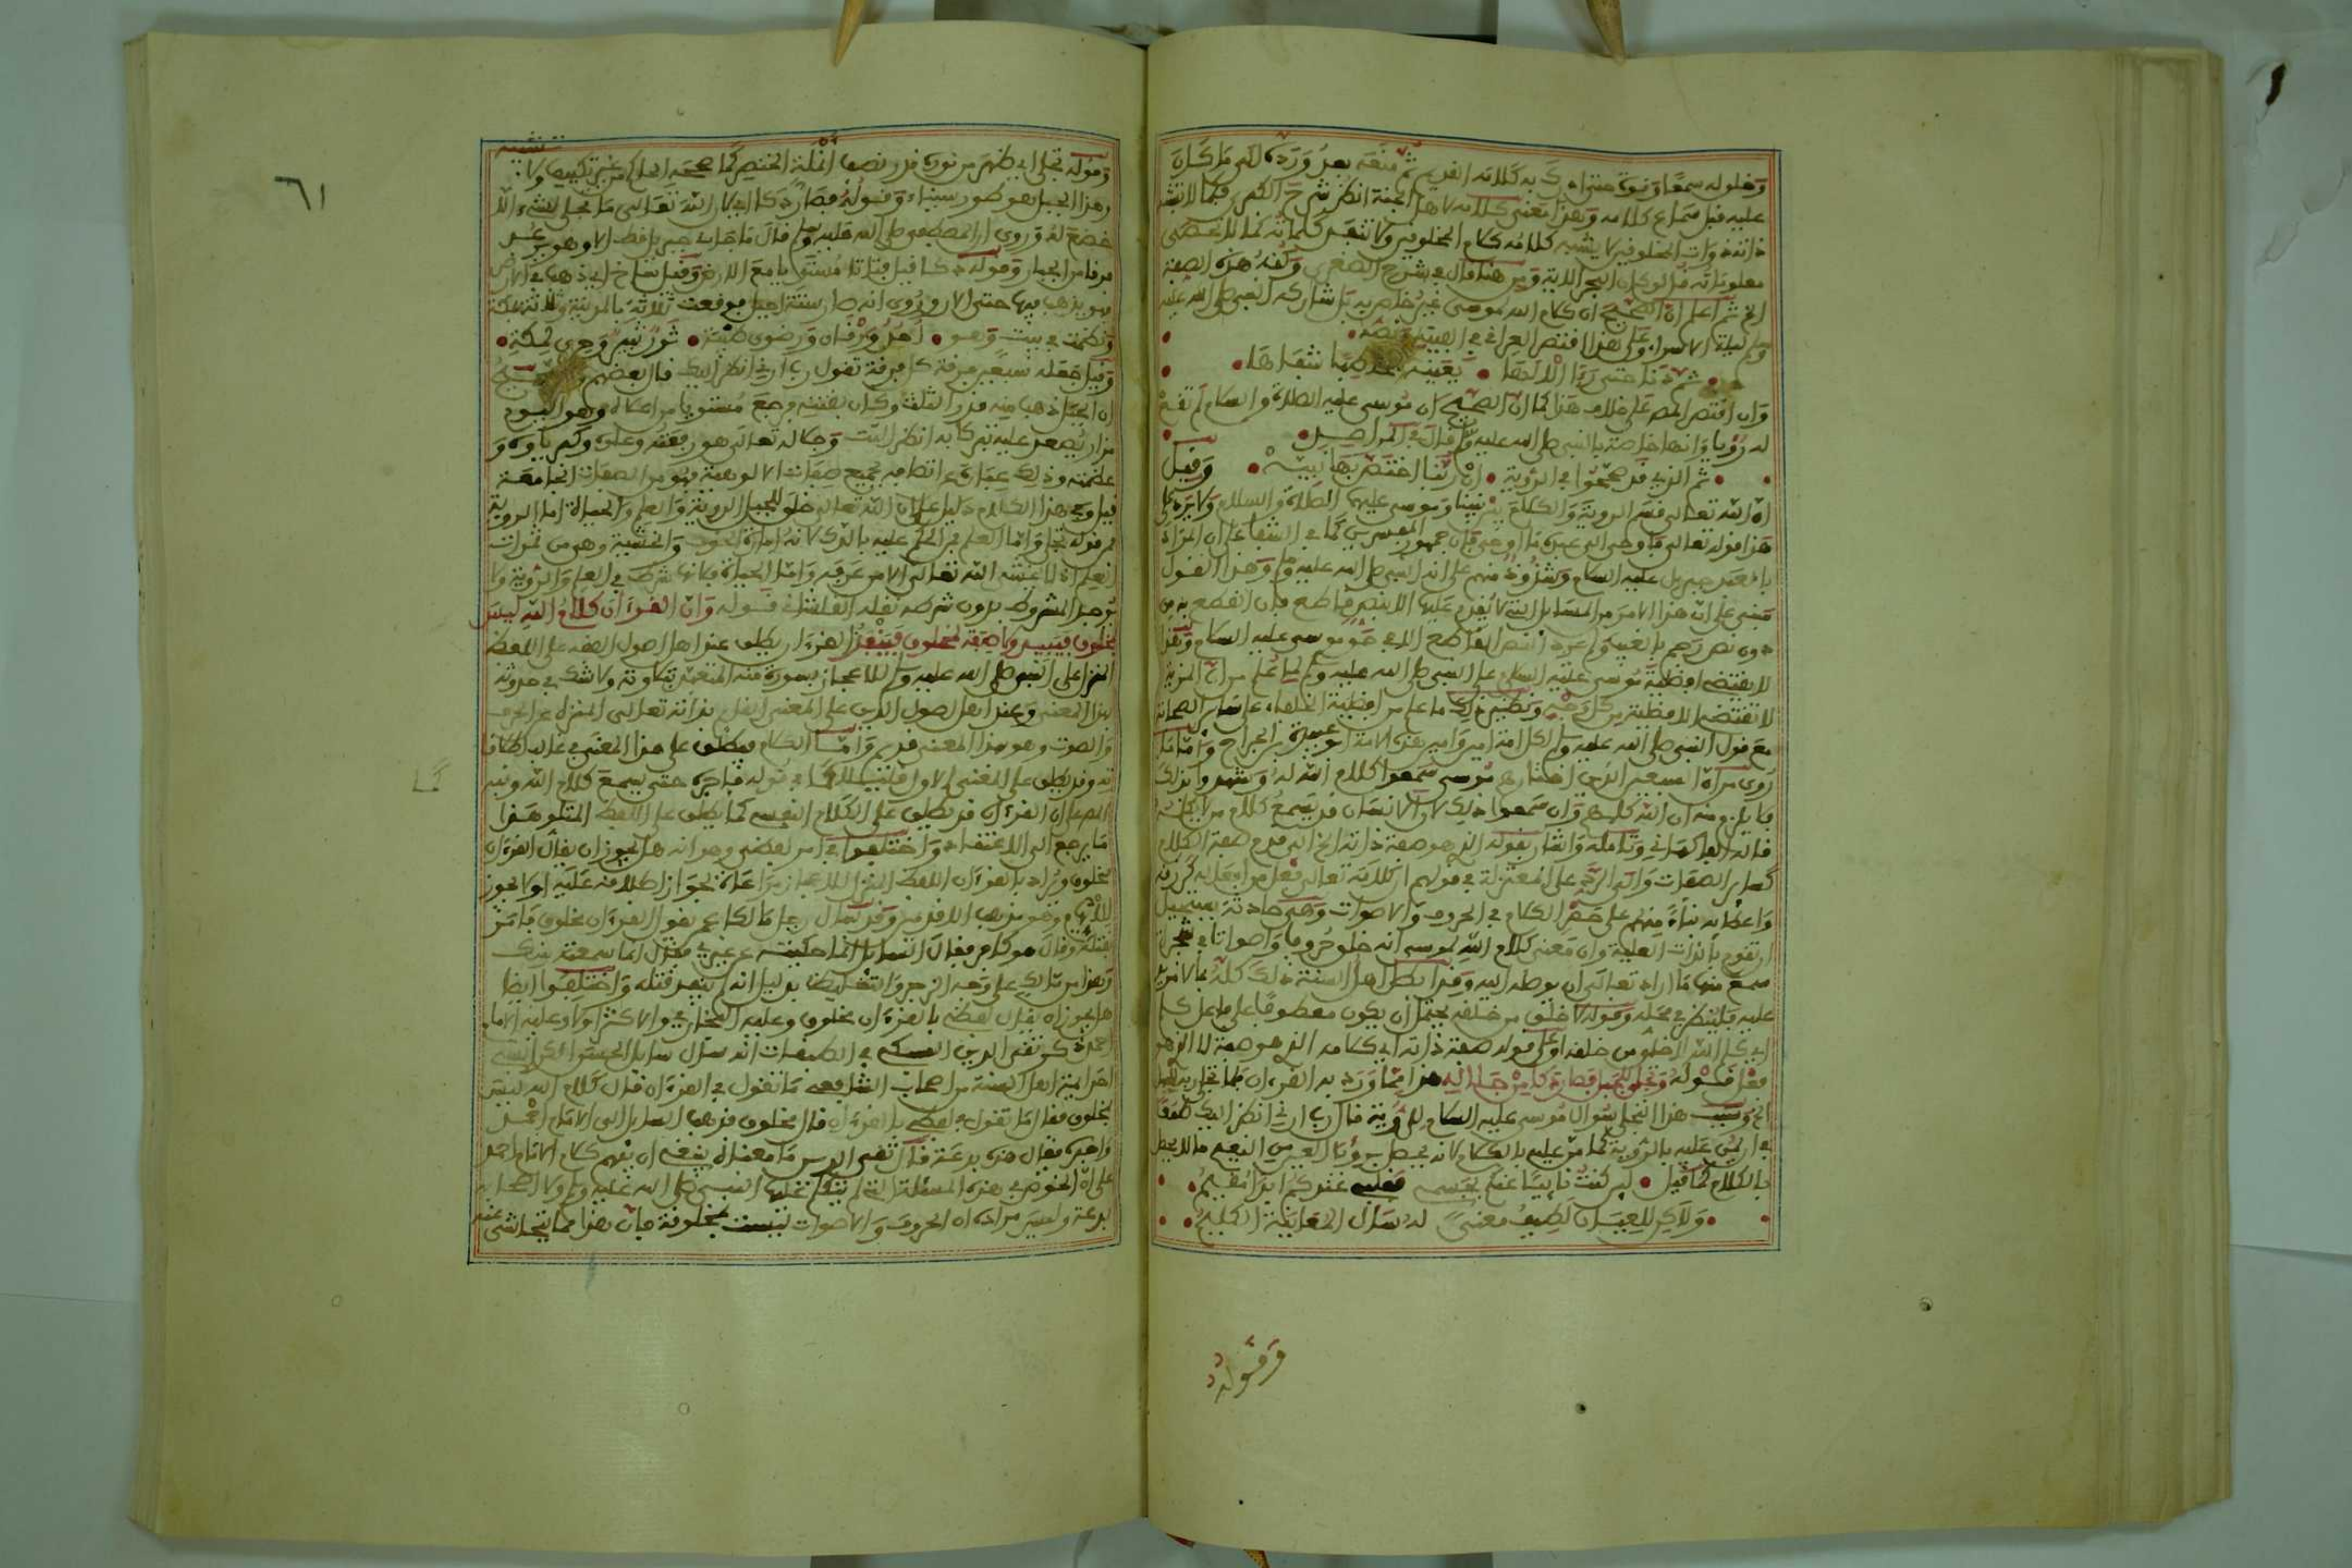 وخلق له سمعا وقوة حتى ادرك به كلامه القديم ثم منعه بعد ورده الى ما كان
عليه قبل سماع كلامه وهذا معنى كلامه لاهل الجنة انظر شرح الكبرى فكما لا تشبه
ذاته ذوات المخلوقين لا يشبه كلامه كلام المخلوقين ولا تنفد كلماته كما لا تحصى
معلوماته قل لو كان البحر الاية ومن هنا قال في شرح الصغرى وكنه هذه الصفة
الخ ثم اعلم ان الصحيح ان كلام الله موسى غير خاص به بل شاركه النبي صلى الله عليه
وسلم ليلة الاسراء وعلى هذا اقتصر العراقي في الفيته ونصه
ثم دنا حتى رءا الالاها بعينه مخاطبا شفاها
وان اقتصر المص على خلاف هذا كما ان الصحيح ان موسى عليه الصلاة والسلام لم تقع
له رؤيا وانها خاصة بالنبي صلى الله عليه وسلم قال في المراصد
ثم الذي قد صححوا في الرؤية ان ربنا اختص بها نبيه وقيل
ان الله تعالى قسم الرؤية والكلام بين نبينا وموسى عليهما الصلاة والسلام ولا يرد على
هذا قوله تعالى فاوحى الى عبده ما اوحى فان جمهور المفسرين كما في الشفا على ان المراد
بالعبد جبريل عليه السلام وشذوذ منهم على انه النبي صلى الله عليه وسلم وهذا القول
مبني على ان هذا الامر من المسايل التي لا يقدم عليها الا بنص قاطع فان القطع به من
دون نص رجم بالغيب ولم يرد النص القاطع الا في حق موسى عليه السلام وهذا
لا يقتضي افضلية موسى عليه السلام على النبي صلى الله عليه وسلم لما علم من ان المزية
لا تقتضي الافضلية من كل وجه ونظير ذلك ما علم من افضلية الخلفاء على ساير الصحابة
مع قول النبي صلى الله عليه وسلم لكل امة امين وامين هذه الامة ابو عبيدة بن الجراح واما ما
روي من ان السبعين الذين اختارهم موسى سمعوا كلام الله له وشهدوا بذلك
فلا يلزم منه ان الله كلمهم وان سمعوا ذلك لان الانسان قد يسمع كلام من لا يكلمه
قاله وتامله واشار بقوله الذي هو صفة ذاته الخ الى قدم صفة الكلام
كساير الصفات والى الرد على المعتزلة في قولهم ان كلامه تعالى فعل من افعاله كرزقه
واعطائه بناء منهم على حصر الكلام في الحروف والاصوات وهي حادثة يستحيل
ان تقوم بالذات العلية وان معنى كلام الله لموسى انه خلق حروفا واصواتا في شجرة
سمع منها ما اراد تعالى ان يوصله اليه وقد ابطل اهل السنة ذلك كله بما لا مزيد
عليه فلينظر في محله وقوله لا خلق من خلقه يحتمل ان يكون معطوفا على
اي كلم الله لا خلق من خلقه او على قوله صفة ذاته اي كلامه الذي هو صفة لا الذي هو
فعل قوله وتجلى للجبل فصار دكا من جلاله هذا مما ورد به القرءان فلما تجلى ربه للجبل
الخ وسبب هذا التجلي سؤال موسى عليه السلام للرؤية قال رب ارني انظر اليك
بالرؤية كما من عليه بالكلام لانه يحصل برؤيا العين من النعيم ما لا يحصل
بالكلام كما قيل لئن كنت نائيا عنكم بجسمي فقلبي عندكم ابدا مقيم
ولاكن للعيان لطيف معنى له سأل المعاينة الكليم
وقوله
٦١
وقوله تجلى اي ظهر من نوره قدر نصف انملة الخنصر كما صححه الحاكم من غير تكييف ولا تشبيه
وهذا الجبل هو طور سيناء وقوله فصار دكا اي لان الله تعالى ما تجلى لشيء الا
خضع له وروي ان المصطفى صلى الله عليه وسلم قال ما هابه جبريل قط الا وهو يرعد
فرقا من الجبار وقوله دكا قيل فتاتا مستويا مع الارض وقيل ساخ اي ذهب في الارض
فهو يذهب فيها حتى الان وروي انه صار ستة اجبل فوقعت ثلاثة بالمدينة وثلاثة بمكة
ونظمت في بيت وهو احد ورقان ورضوى طيبة ثور ثبير وحرى لمكة
وقيل جعله سبعين فرقة كل فرقة تقول رب ارني انظر اليك قال بعضهم والصحيح
ان الجبل ذهب منه قدر الثلث وكان بقيته رجع مستويا من اعلاه وهو اليوم
مزار يصعد عليه تبركا به انظر التت وجلاله تعالى هو رفعته وعلوه وكبرياؤه و
عظمته وذلك عبارة عن اتصافه بجميع صفات الالوهية فهو من الصفات الجامعة
قيل وفي هذا الكلام دليل على ان الله تعالى خلق للجبل الرؤية والعلم والحياة اما الرؤية
فمن قوله تجلى واما العلم في الحكم عليه بالدك لانه امارة الخوف والخشية وهو من ثمرات
العلم اذ لا يخشى الله تعالى الا من عرفه واما الحياة فلانها شرط في العلم والرؤية ولا
يوجد المشروط بدون شرطه نقله الفاشاني قوله وان القرءان كلام الله ليس
بمخلوق فيبيد ولا صفة لمخلوق فينفد القرءان يطلق عند اهل اصول الفقه على اللفظ
المنزل على النبي صلى الله عليه وسلم للاعجاز بسورة منه المتعبد بتلاوته ولا شك في حدوثه
بهذا المعنى وعند اهل اصول الدين على المعنى القائم بذاته تعالى المنزه عن الحرف
والصوت وهو بهذا المعنى قديم واما الكلام فيطلق على هذا المعنى في غالب اطلاقا
ته وقد يطلق على المعنى الاول قليلا كما في قوله فاجره حتى يسمع كلام الله ونبه
المص على ان القرءان قد يطلق على الكلام النفسي كما يطلق على اللفظ المتلو هذا
ما يرجع الى الاعتقاد واختلفوا في امر لفظي وهو انه هل يجوز ان يقال القرءان
مخلوق ويراد بالقرءان اللفظ المنزل للاعجاز مراعاة لجواز اطلاقه عليه او لا يجوز
للايهام وهو مذهب الاقدمين وقد سأل رجل مالكا عمن يقول القرءان مخلوق فامر
بقتله وقال هو كافر فقال السائل انما حكيته عن غيري فقال انما سمعته منك
وهذا من مالك على وجه الزجر والتغليظ بدليل انه لم ينفذ قتله واختلفوا ايضا
هل يجوز ان يقال لفظي بالقرءان مخلوق وعليه البخاري والاكثر او لا وعليه الامام
احمد ذكر تقي الدين السبكي في الطبقات انه سأل سايل الحسين الكرابيسي
احد ايمة اهل السنة من اصحاب الشافعي ما تقول في القرءان قال كلام الله ليس
بمخلوق فقال ما تقول في لفظي بالقرءان قال مخلوق فذهب السايل الى الامام احمد
واخبره فقال هذه بدعة قال تقي الدين ما معناه ينبغي ان يفهم كلام الامام احمد
على ان الخوض في هذه المسئلة التي لم يتكلم عليها النبي صلى الله عليه وسلم ولا اصحابه
بدعة وليس مراده ان الحروف والاصوات ليست بمخلوقة فان هذا مما يتحاشى عنه